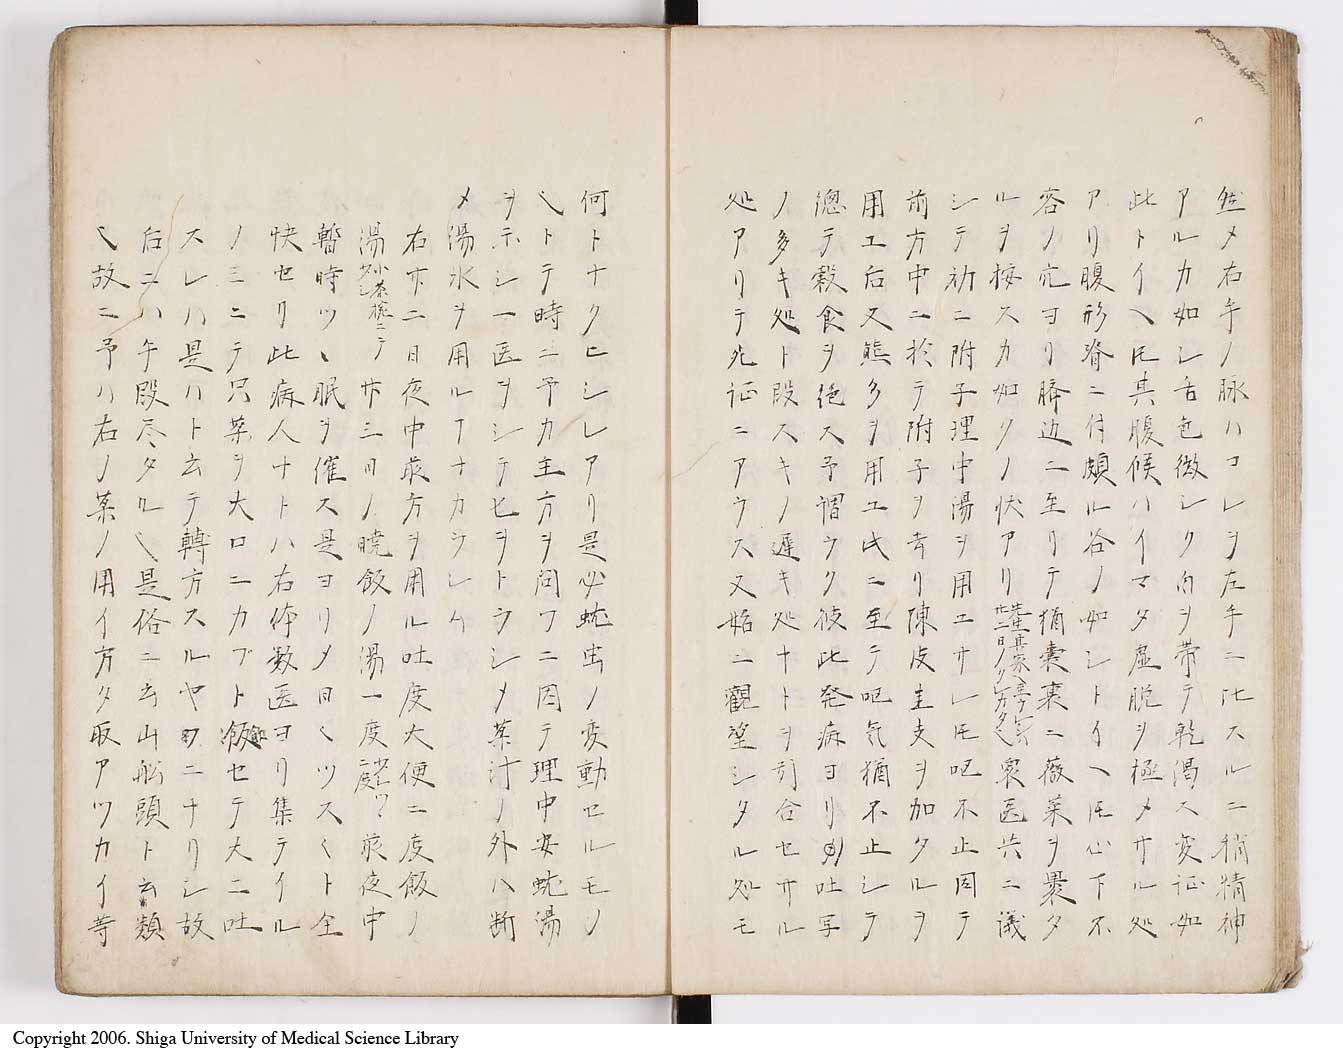 然メ右手ノ脉ハコレヲ左手ニ比スルニ稍精神
アルカ如シ舌色微シク白ヲ帯テ乾渇ス変証如
此トイヘ𪜈其腹候ハイマタ虚脱ヲ極メサル処
アリ腹形脊ニ付頗ル谷ノ如シトイヘ𪜈心下不
容ノ穴ヨリ臍辺ニ至リテ猶嚢裏ニ薇菜ヲ畳タ
ルヲ按スカ如クノ状アリ 衆医共ニ議
シテ初ニ附子理中湯ヲ用エサレ𪜈吧不止因テ
前方中ニ於テ附子ヲ去リ陳皮圭支ヲ加タルヲ
用エ后又熊夕ヲ用エ氐ニ至テ吧気猶不止シテ
總テ穀食ヲ絶ス予謂ラク彼此発病ヨリ吐写
ノ多キ処ト段スキノ遅キ処ナトヲ引合セサル
処アリテ此証ニアラス又始ニ觀望シタル処モ
何トナクヒシレアリ是必蚘虫ノ変動セルモノ
ヘトテ時ニ予カ主方ヲ問フニ因テ理中安蚘湯
ヲ示シ一医ヲシテヒヲトラシメ薬汁ノ外ハ断
メ湯水ヲ用ルヿナカラシム
右廿二日夜中前方ヲ用ル吐度大便ニ度飯ノ
湯小茶椀ニテ廿三日ノ暁飯ノ湯一度 前夜中
暫時ツヽ眠ヲ催ス是ヨリメ日〻ツスヘト全
快セリ此病人ナトハ右体数医ヨリ集テイル
ノミニテ只薬ヲ大口ニカブト飯セテ大ニ吐
スレハ是ハトテ轉方スルヤヲニナリシ故
后ニハ午段尽タルヘ是俗ニ云山船頭ト云類
ヘ故ニ予ハ右ノ薬ノ用イ方タ取アツカイ等